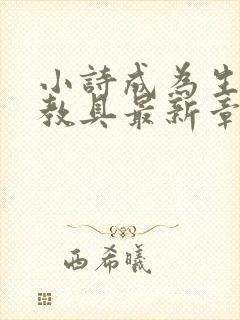 小詩成為生
教具最新章
西希曦